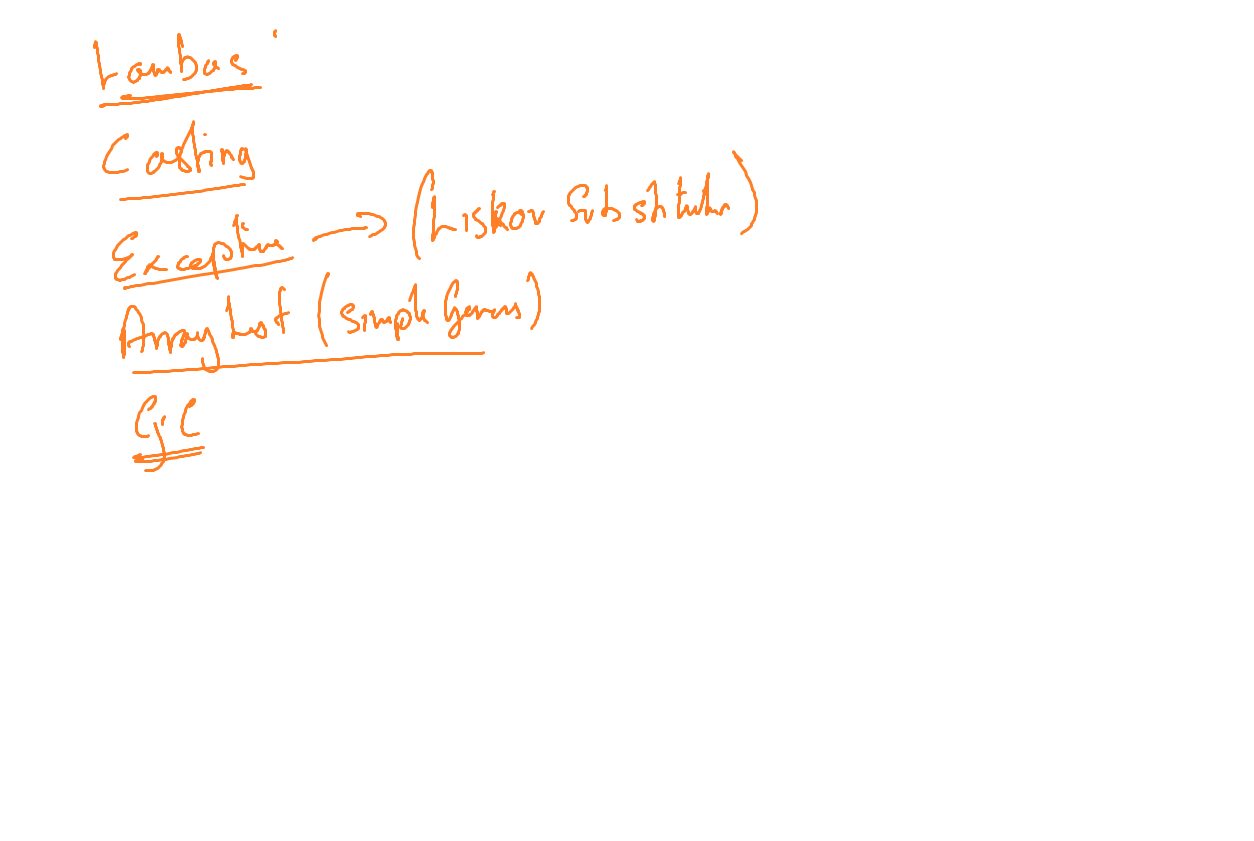 Lambas
Casting
Exception → (Liskov Substitution)
ArrayList (Simple Gener)
GC